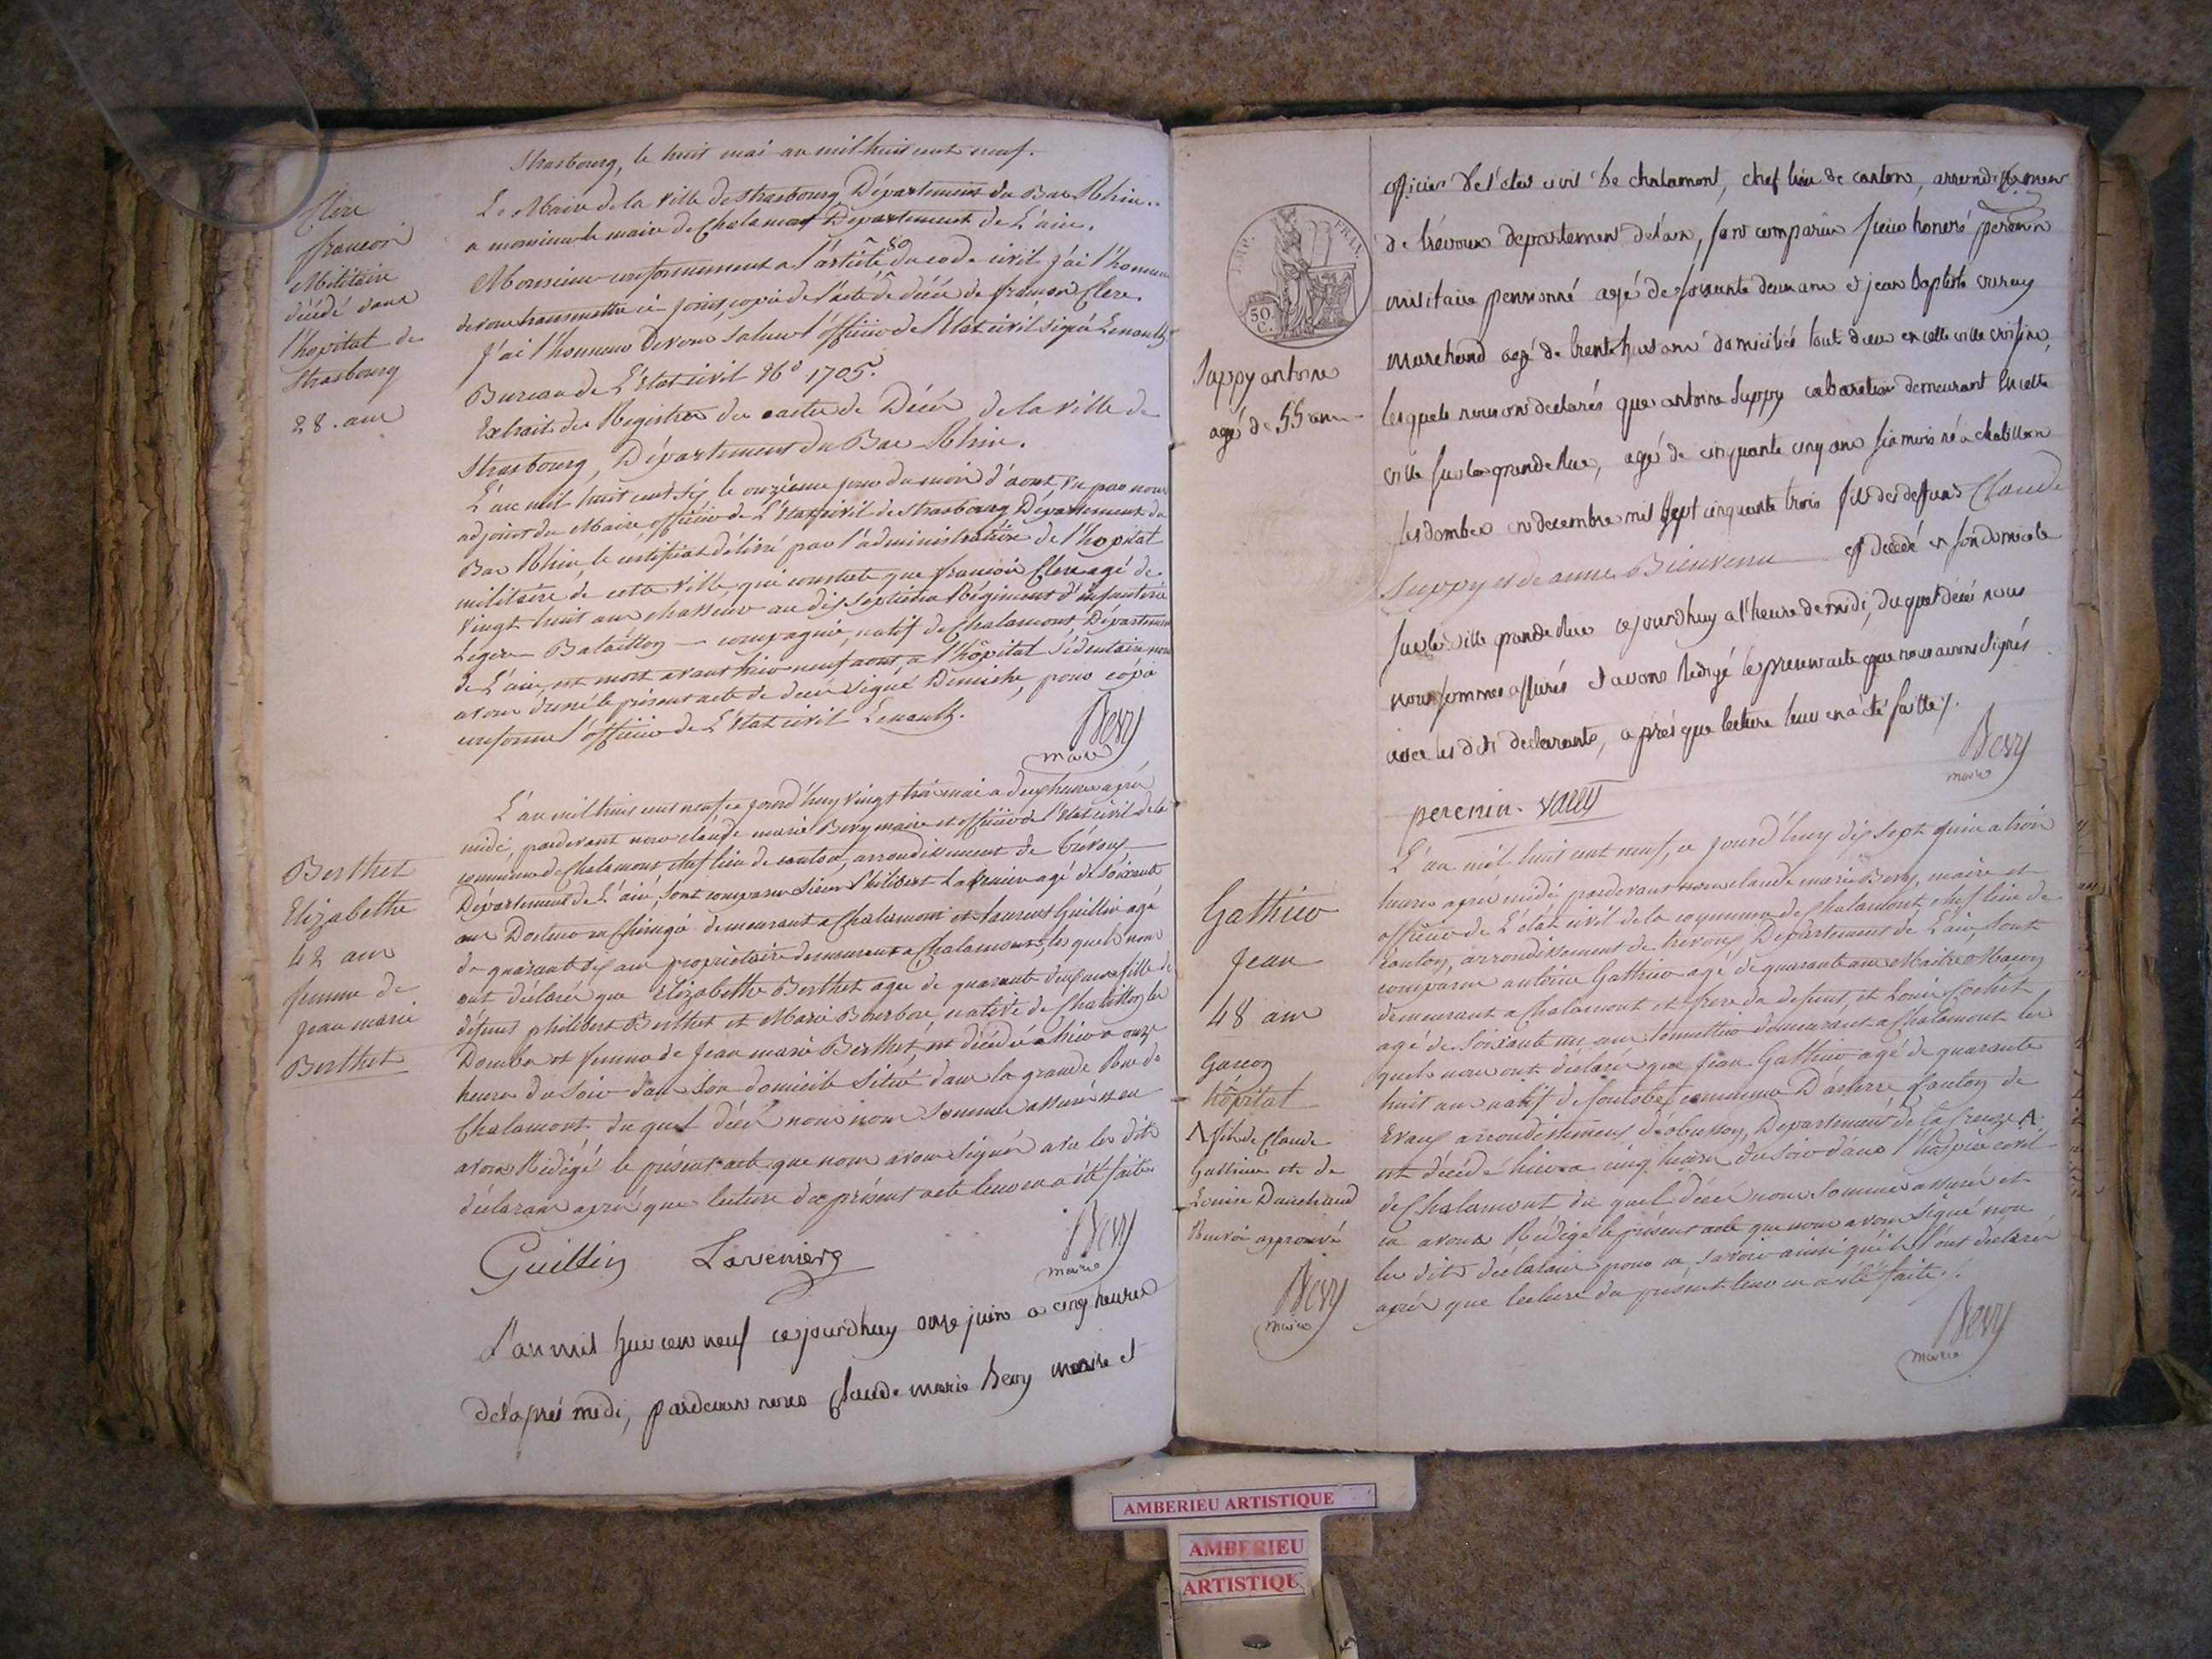 Strasbourg, le huit mai an mil huit cent neuf.
Clerc
francois
Militaire
décédé dans
l'hopital de
Strasbourg
28. ans
Le Maire de la Ville de Strasbourg Département du Bas Rhin..
a monsieur le maire de Chalamont Département de L'ain.
Monsieur conformement a l'article 80 du code civil j'ai l'honneur
de vous transmettre ci joint, copie de l'acte de décés de francois Clerc.
J'ai l'honneur de vous saluer l'officier de l'Etat civil signé Lenault
Bureau de L'Etat civil No 1705.
Extrait des Registres des actes de Décés de la ville de
Strasbourg, Département du Bas-Rhin.
L'an mil huit cent six le onzieme jour du mois d'aout, vu par nous
adjoint du Maire officier de L'Etat civil de Strasbourg Département du
Bas Rhin, le certificat délivré par l'administration de l'hopital
militaire de cette Ville, qui constate que francois Clerc agé de
vingt huit ans chasseur au dix septieme Régiment d'infanterie
Legere — Bataillon — compagnie, natif de Chalamont Département
de L'ain, est mort avant hier neuf aout, a l'hôpital Sédentaire nous
avons dressé le présent acte de décés signé Demichel, pour copie
conforme l'officier de L'Etat civil Lenault.
Bevy
maire
Berthet
Elizabethe
42 ans
femme de
jean marie
Berthet
L'an mil huit cent neuf ce jourd'huy vingt trois mai a deux heures après
midi, pardevant nous claude marie Bevy maire et officier de l'Etat civil de la
commune de Chalamont chef lieu de canton, arrondissement de Trévoux
Département de L'ain, sont comparus sieur Philibert Lavenier agé de Soixante
ans Docteur en Chirurgie demeurant a Chalamont et laurent Guillin agé
de quarante six ans propriétaire demeurant a Chalamont, les quels nous
ont déclaré que Elizabethe Berthet agée de quarante deux ans fille de
défunt philibert Berthet et Marie Bourbon native de Chatillon les
Dombes et femme de Jean marie Berthet, est décédée hier a onze
heures du Soir dans son domicile Situé dans la grande Rue de
Chalamont. du quel décés nous nous sommes assurés et en
avons Rédigé le présent acte que nous avons signés avec les dits
déclarans après que lecture du présent acte leur en a été faite.
Guillin Lavenierg
Bevy
maire
L'an mil huit cent neuf ce jourdhuy onze juin a cinq heures
del'après midi, pardevant nous claude marie bevy maire et
IMP. FRAN.
50.
C.
Suppy antoine
agé de 55 ans
officier de l'etat civil de chalamont, chef lieu de canton, arrondissement
de trévoux departement delain, sont comparus sieur honoré perenin
militaire pensionné agé de soixante deux ans et jean baptiste
marchand agé de trente huit ans domiciliés tout deux en cette ville
lesquels nous ont declarés que antoine Suppy cabaretier demeurant en cette
ville sur la grande Rue, agé de cinquante cinq ans six mois né a chatillon
les dombes en decembre mil sept cinquante trois fils des defunts Claude
Suppy et de anne Bienvenu est decedé en son domicile
sur la ville grande Rue cejourdhuy a l'heure de midi, duquel décès nous
nous sommes assurés et avons Rédigé le present acte que nous avons signés
avec les dits declarants, après que lecture leur en a été faitte ./.
perenin.
Bevy
maire
Gathier
Jean
48 ans
Garcon
hôpital
Λ fils de Claude
Gathier et de
Louise Dauchaud
Renvoi approuvé
Bevy
maire
L'an mil huit cent neuf, ce jourd'huy dix sept juin a trois
heures après midi pardevant nous claude marie Bevy, maire et
officier de L'état civil de la commune de Chalamont, chef lieu de
canton, arrondissement de trevoux, Département de L'ain, sont
comparus antoine Gathier agé de quarante ans Maitre Maçon
demeurant a Chalamont et frere du defunt, et Louis Cochet
agé de Soixante un ans demeurant a Chalamont les
quels nous ont déclaré que Jean Gathier agé de quarante
huit ans natif de commune canton de
Evaux arrondissement d'obusson, Département de la Creuse Λ
est décédé hier a cinq heures du soir dans l'hospice civil
de Chalamont du quel décés nous sommes assurés et
en avons Rédigé le présent acte que nous avons signé non
les dits déclarans pour ne savoir ainsi qu'ils l'ont déclaré
après que lecture du présent leur en a été faite ./.
Bevy
maire
AMBERIEU ARTISTIQUE
AMBERIEU
ARTISTIQUE